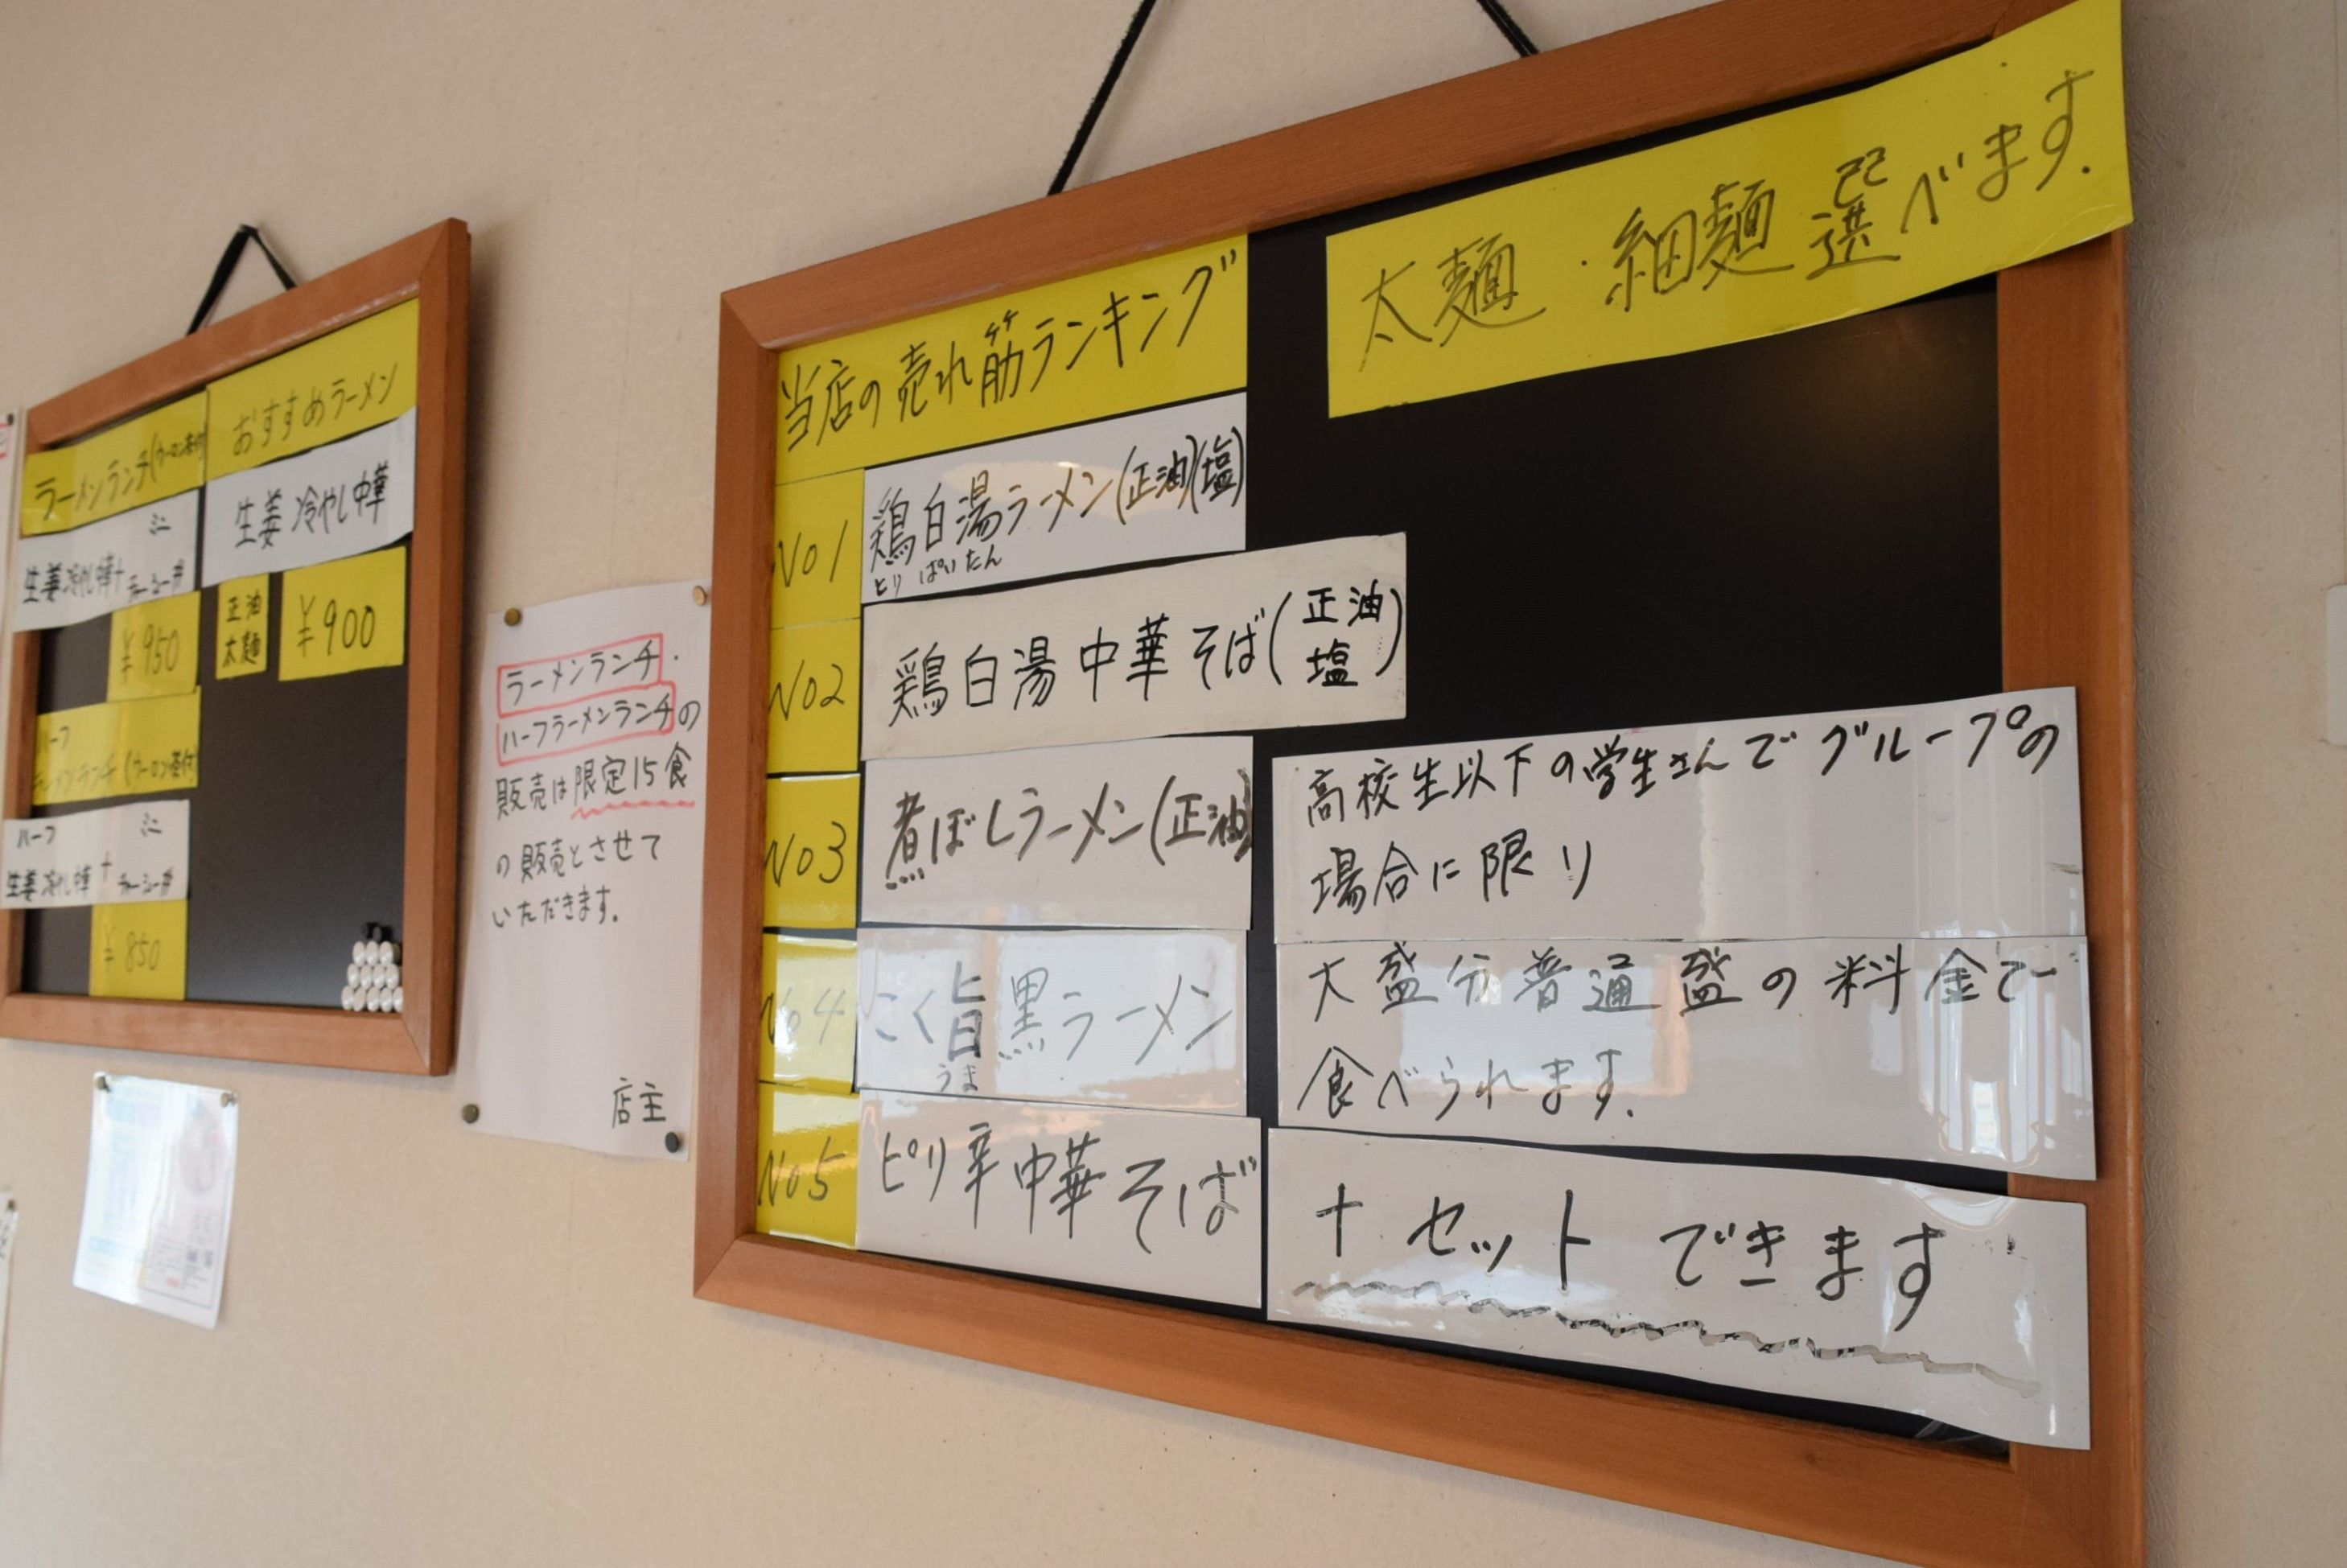 ラーメンランチ(ウーロン茶付)
ミニ
生姜冷やし中華+チャーシュー丼
¥950
ハーフ
ラーメンランチ(ウーロン茶付)
ハーフ ミニ
生姜冷やし中華+チャーシュー丼
¥850
おすすめラーメン
生姜冷やし中華
正油
太麺
¥900
ラーメンランチ・
ハーフラーメンランチの
販売は限定15食
の販売とさせて
いただきます。
店主
当店の売れ筋ランキング
No1 鶏白湯ラーメン(正油)(塩)
とり ぱいたん
No2 鶏白湯中華そば(正油 塩)
No3 煮ぼしラーメン(正油)
No4 こく旨黒ラーメン
うま
No5 ピリ辛中華そば
太麺・細麺選べます.
高校生以下の学生さんでグループの
場合に限り
大盛分普通盛の料金で
食べられます.
+ セットできます